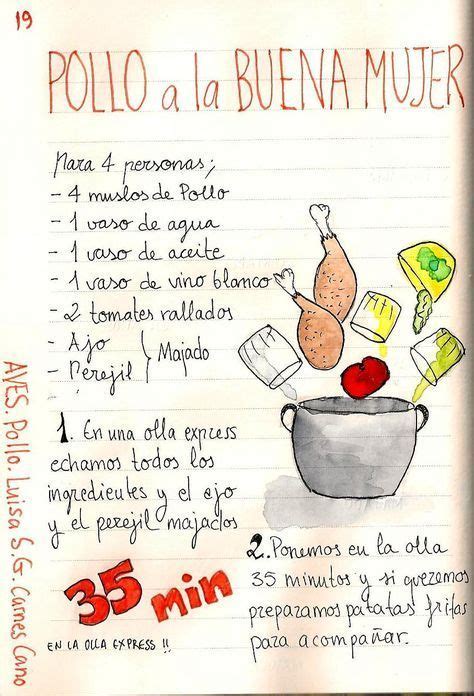 19
POLLO a la BUENA MUJER
Para 4 personas;
- 4 muslos de Pollo
- 1 vaso de agua
- 1 vaso de aceite
- 1 vaso de vino blanco
- 2 tomates rallados
- Ajo
- Perejil } Majado
1. En una olla express
echamos todos los
ingredientes y el ajo
y el perejil majados
2. Ponemos en la olla
35 minutos y si queremos
preparamos patatas fritas
para acompañar.
35 min
EN LA OLLA EXPRESS !!
AVES. Pollo. Luisa S.G. Carnes Cano